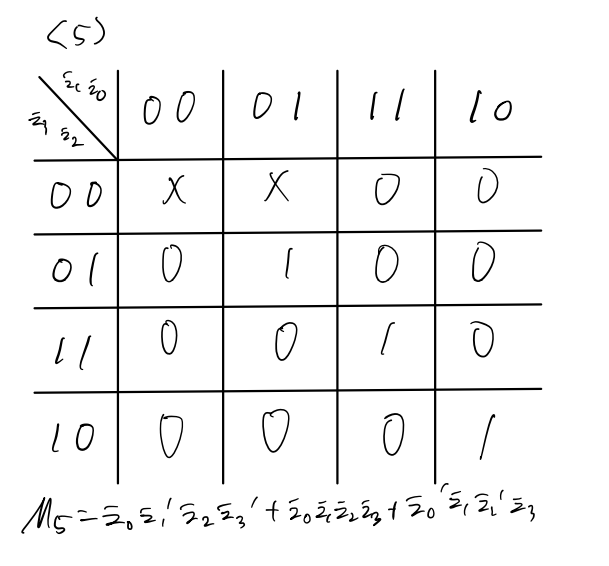 (5)
z₁ z₀
z₃ z₂
00 01 11 10
00 X X 0 0
01 0 1 0 0
11 0 0 1 0
10 0 0 0 1
M5 = z₀z₁'z₂z₃' + z₀z₁z₂z₃ + z₀'z₁z₂'z₃